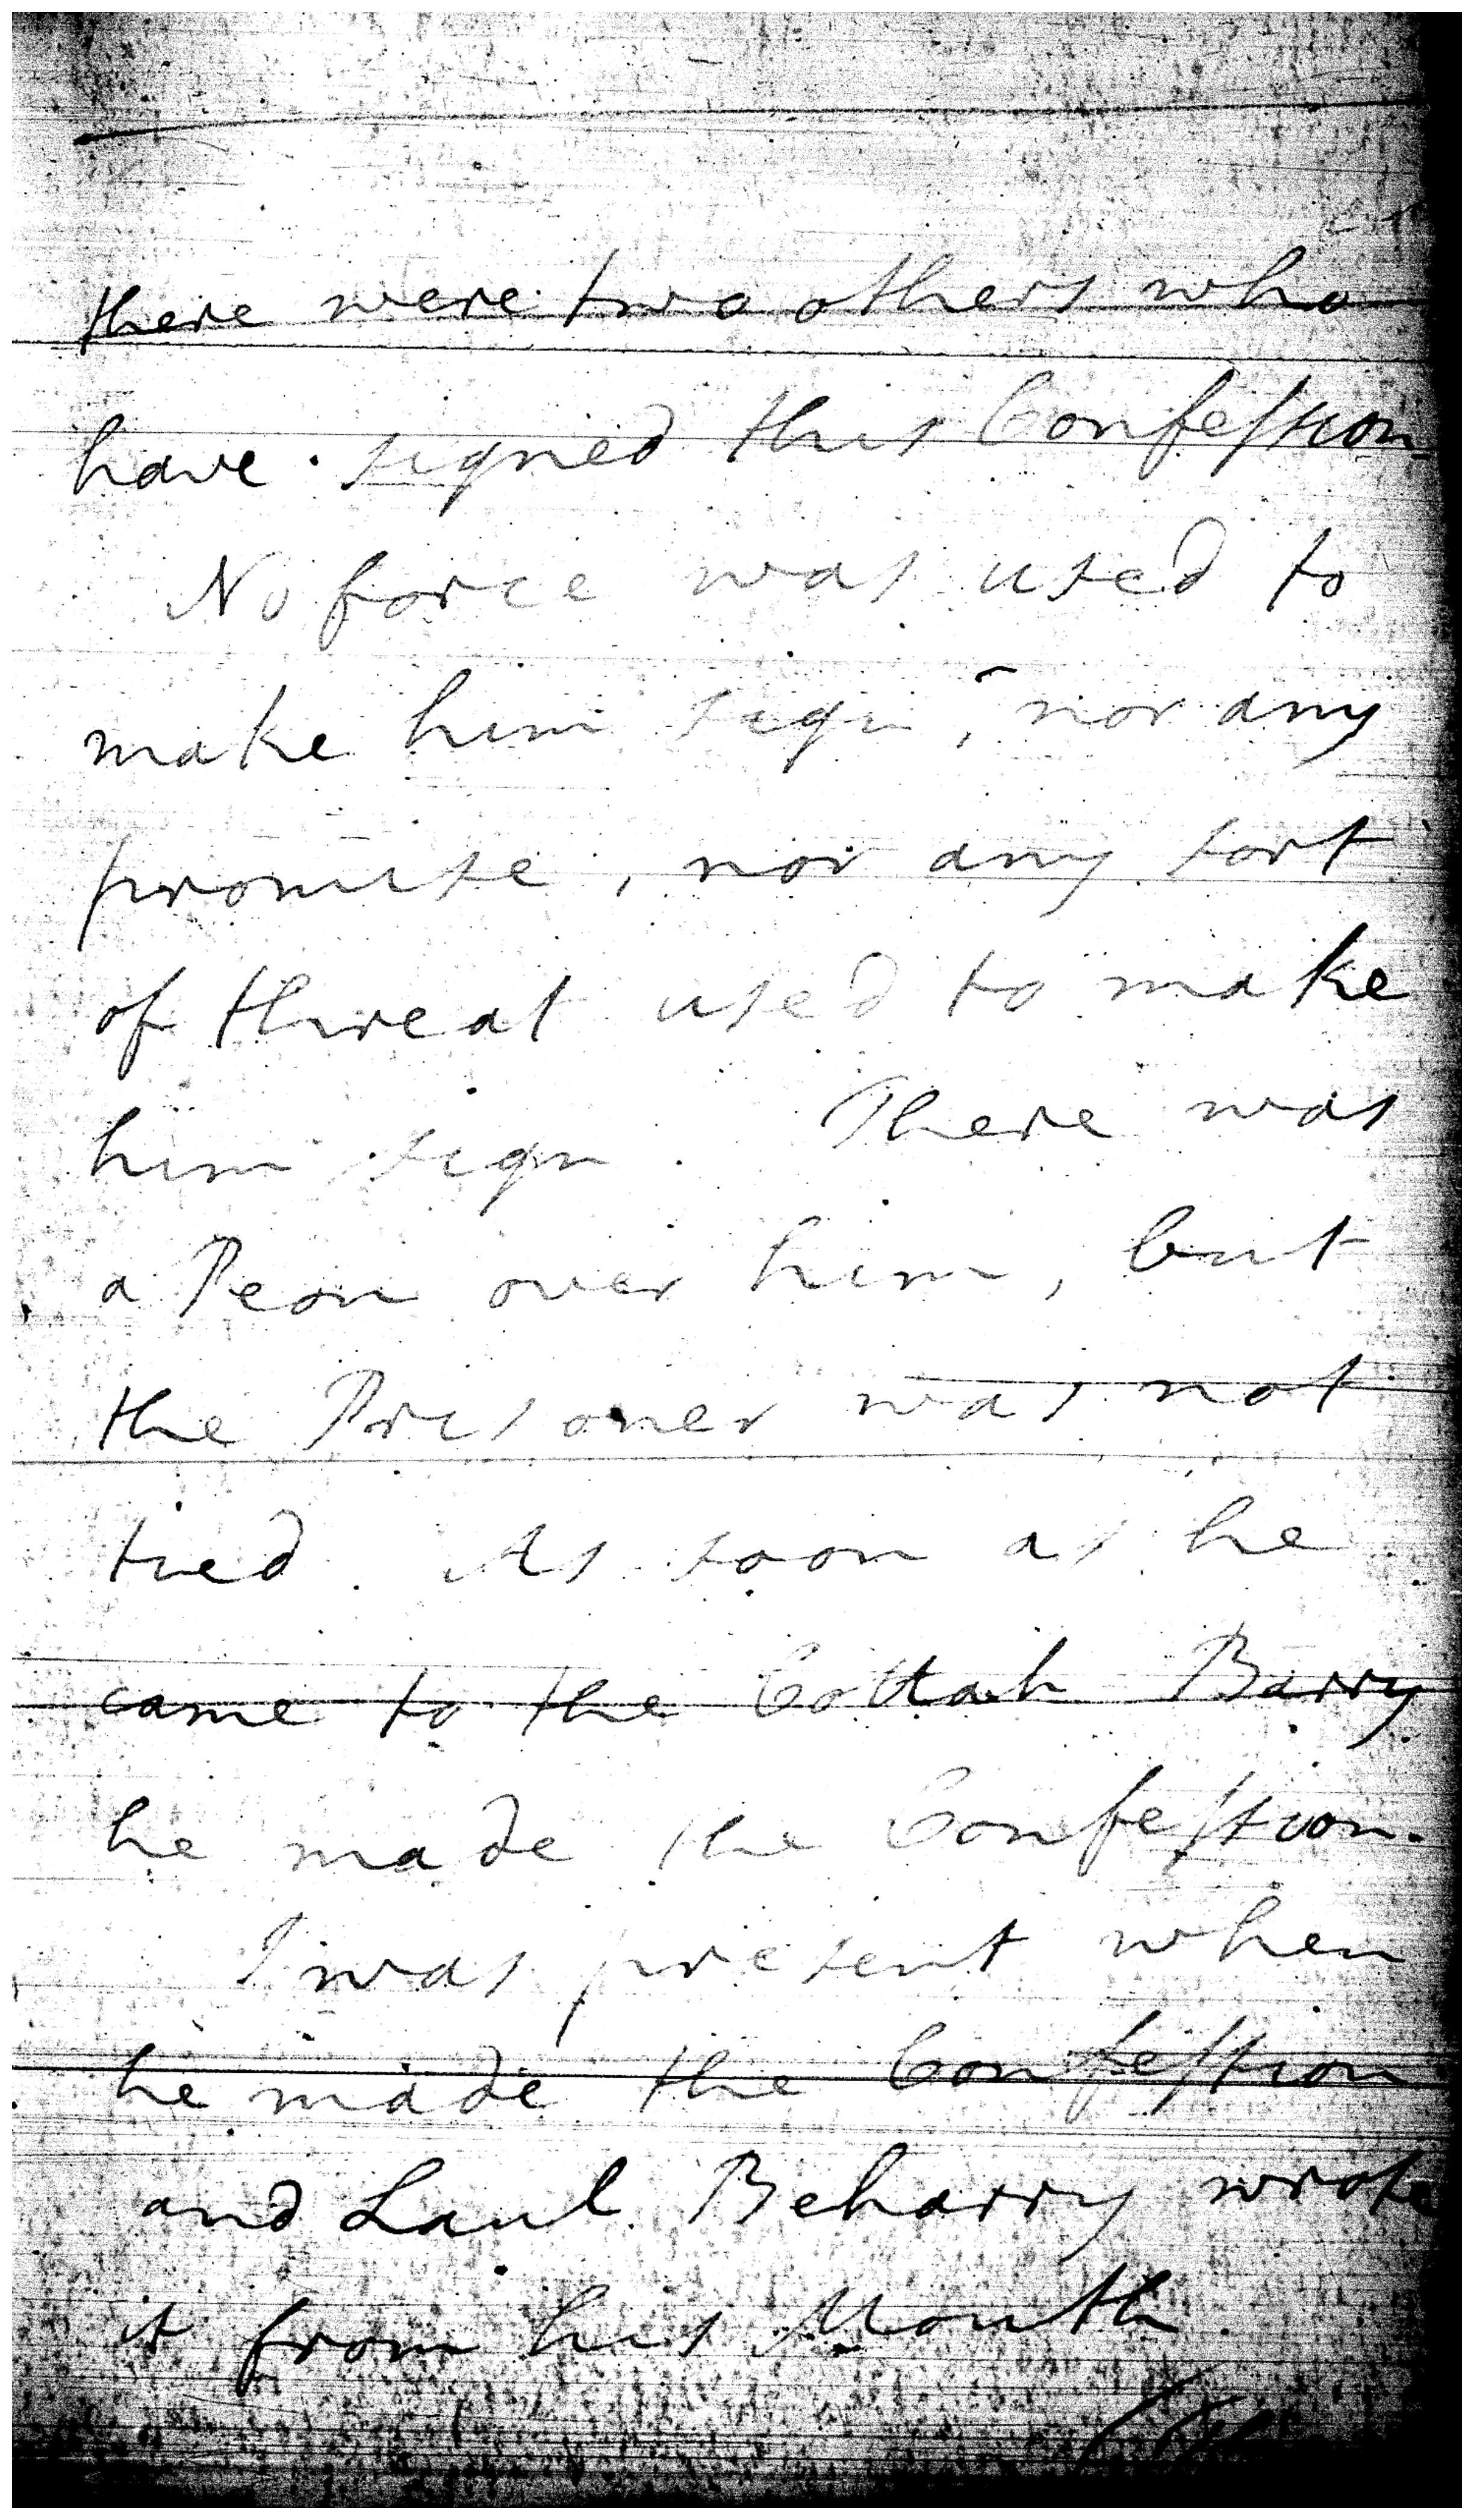 there were two others who
have signed this Confession
No force was used to
make him sign, nor any
promise, nor any sort
of threat used to make
him sign. There was
a Peon over him, but
the Prisoner was not
tied. As soon as he
came to the Cottah Barry
he made the Confession.
I was present when
he made the Confession
and Laul Beharry wrote
it from his Mouth.